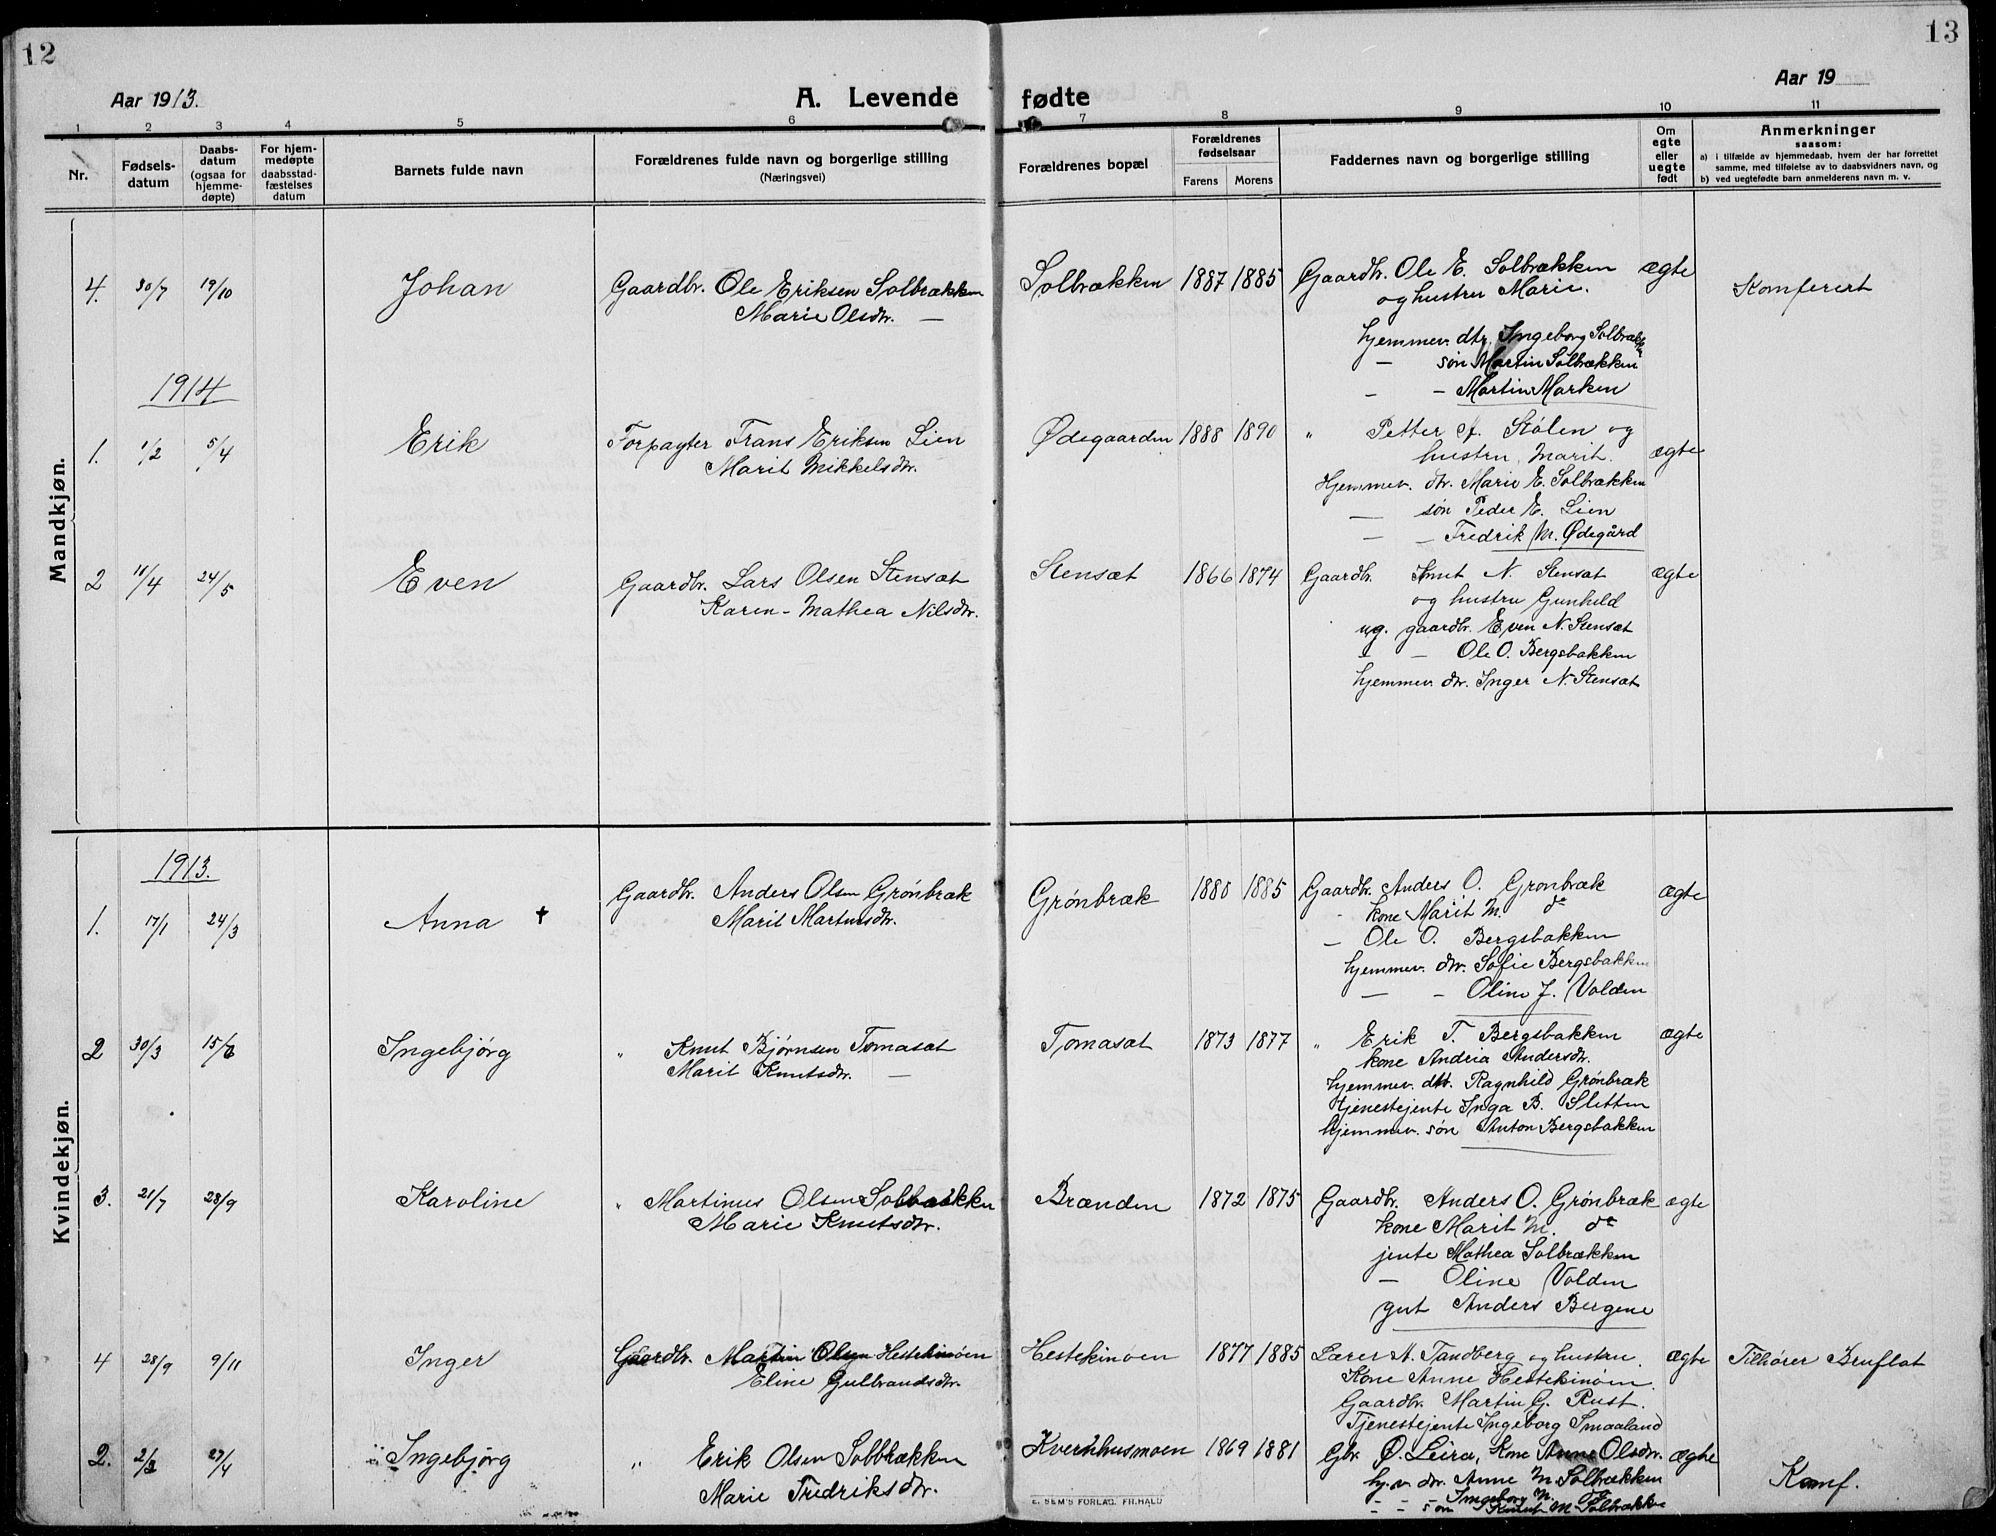 12
13
Aar 1913.
A. Levende fødte
Aar 19
1 2 3 4 5 6 7 8 9 10 11
Nr.
Fødsels-
datum
Daabs-
datum
(ogsaa for
hjemme-
døpte)
For hjem-
medøpte
daabsstad-
fæstelses
datum
Barnets fulde navn
Forældrenes fulde navn og borgerlige stilling
(Næringsvei)
Forældrenes bopæl
Forældrenes
fødselsaar
Farens Morens
Faddernes navn og borgerlige stilling
Om
egte
eller
uegte
født
Anmerkninger
saasom:
a) i tilfælde av hjemmedaab, hvem der har forrettet
samme, med tilføielse av to daabsvidners navn, og
b) ved uegtefødte barn anmelderens navn m. v.
Mandkjøn.
4. 30/7 19/10 Johan Gaardbr. Ole Eriksen Solbrækken Solbrækken 1887 1885 Gaardbr. Ole E. Solbrækken ægte Komferert
Marie Olsdtr. — og hustru Marie.
hjemmev. dtr. Ingeborg Solbrækken
— søn Martin Solbrækken
- - Martin Marken
1914
1. 1/2 5/4 Erik Forpagter Frans Eriksen Lien Ødegaarden 1888 1890 " Petter A. Stólen og ægte
Marit Mikkelsdtr. hustru, Marit.
Hjemmev. dtr. Marie E. Solbrækken
— søn Peder E. Lien
- - Fredrik M. Ødegård
2 11/4 24/5 Even Gaardbr. Lars Olsen Stensæt Stensæt 1866 1874 Gaardbr. Knut N. Stensæt ægte
Karen-Mathea Nilsdtr. og hustru Gunhild
ug. gaardbr. Even N. Stensæt
- - Ole O. Bergsbakken
hjemmev. dtr. Inger N. Stensæt
Kvindekjøn.
1913.
1. 17/1 24/3 Anna † Gaardbr. Anders Olsen Grønbræk Grønbræk 1880 1885 Gaardbr. Anders O. Grønbræk ægte
Marit Martinsdtr. kone Marit M. do
— Ole O. Bergsbakken
hjemmev. dtr. Sofie Bergsbakken
— - Oline J. Volden
2 30/3 15/6 Ingebjørg " Knut Bjørnsen Tomasæt Tomasæt 1873 1877 " Erik T. Bergsbakken ægte
Marit Knutsdtr. — kone Andria Andersdtr.
hjemmev. dtr. Ragnhild Grønbræk
tjenestejente Inga B. Sletten
hjemmev. søn Anton Bergsbakken
3. 21/7 28/9 Karoline " Martinus Olsen Solbrækken Brænden 1872 1875 Gaardbr. Anders O. Grønbræk ægte
Marie Knutsdtr. kone Marit M. do
jente Mathea Solbrækken
— Oline Volden
gut Anders Bergene
4 28/9 9/11 Inger Gaardbr. Martin Olsen Hestekinden Hestekinden 1877 1885 Lærer A. Tandberg og hustru. ægte Tilhører Bruflat
Eline Gulbrandsdtr. Kone Anne Hestekinden.
Gaardbr. Martin G. Rust.
Tjenestejente Ingeborg Smaaland
2. 2/3 27/4 Ingebjørg " Erik Olsen Solbrækken Kvernhusmoen 1869 1881 Gbr. Ø. Leira, Kone Anne Olsdtr. ægte Komf.
Marie Fredriksdtr. hj.v. dtr. Anne M. Solbrækken
- - Ingeborg M. do
- - søn Knut M. Solbrækken
E. SEM'S FORLAG. FR.HALD